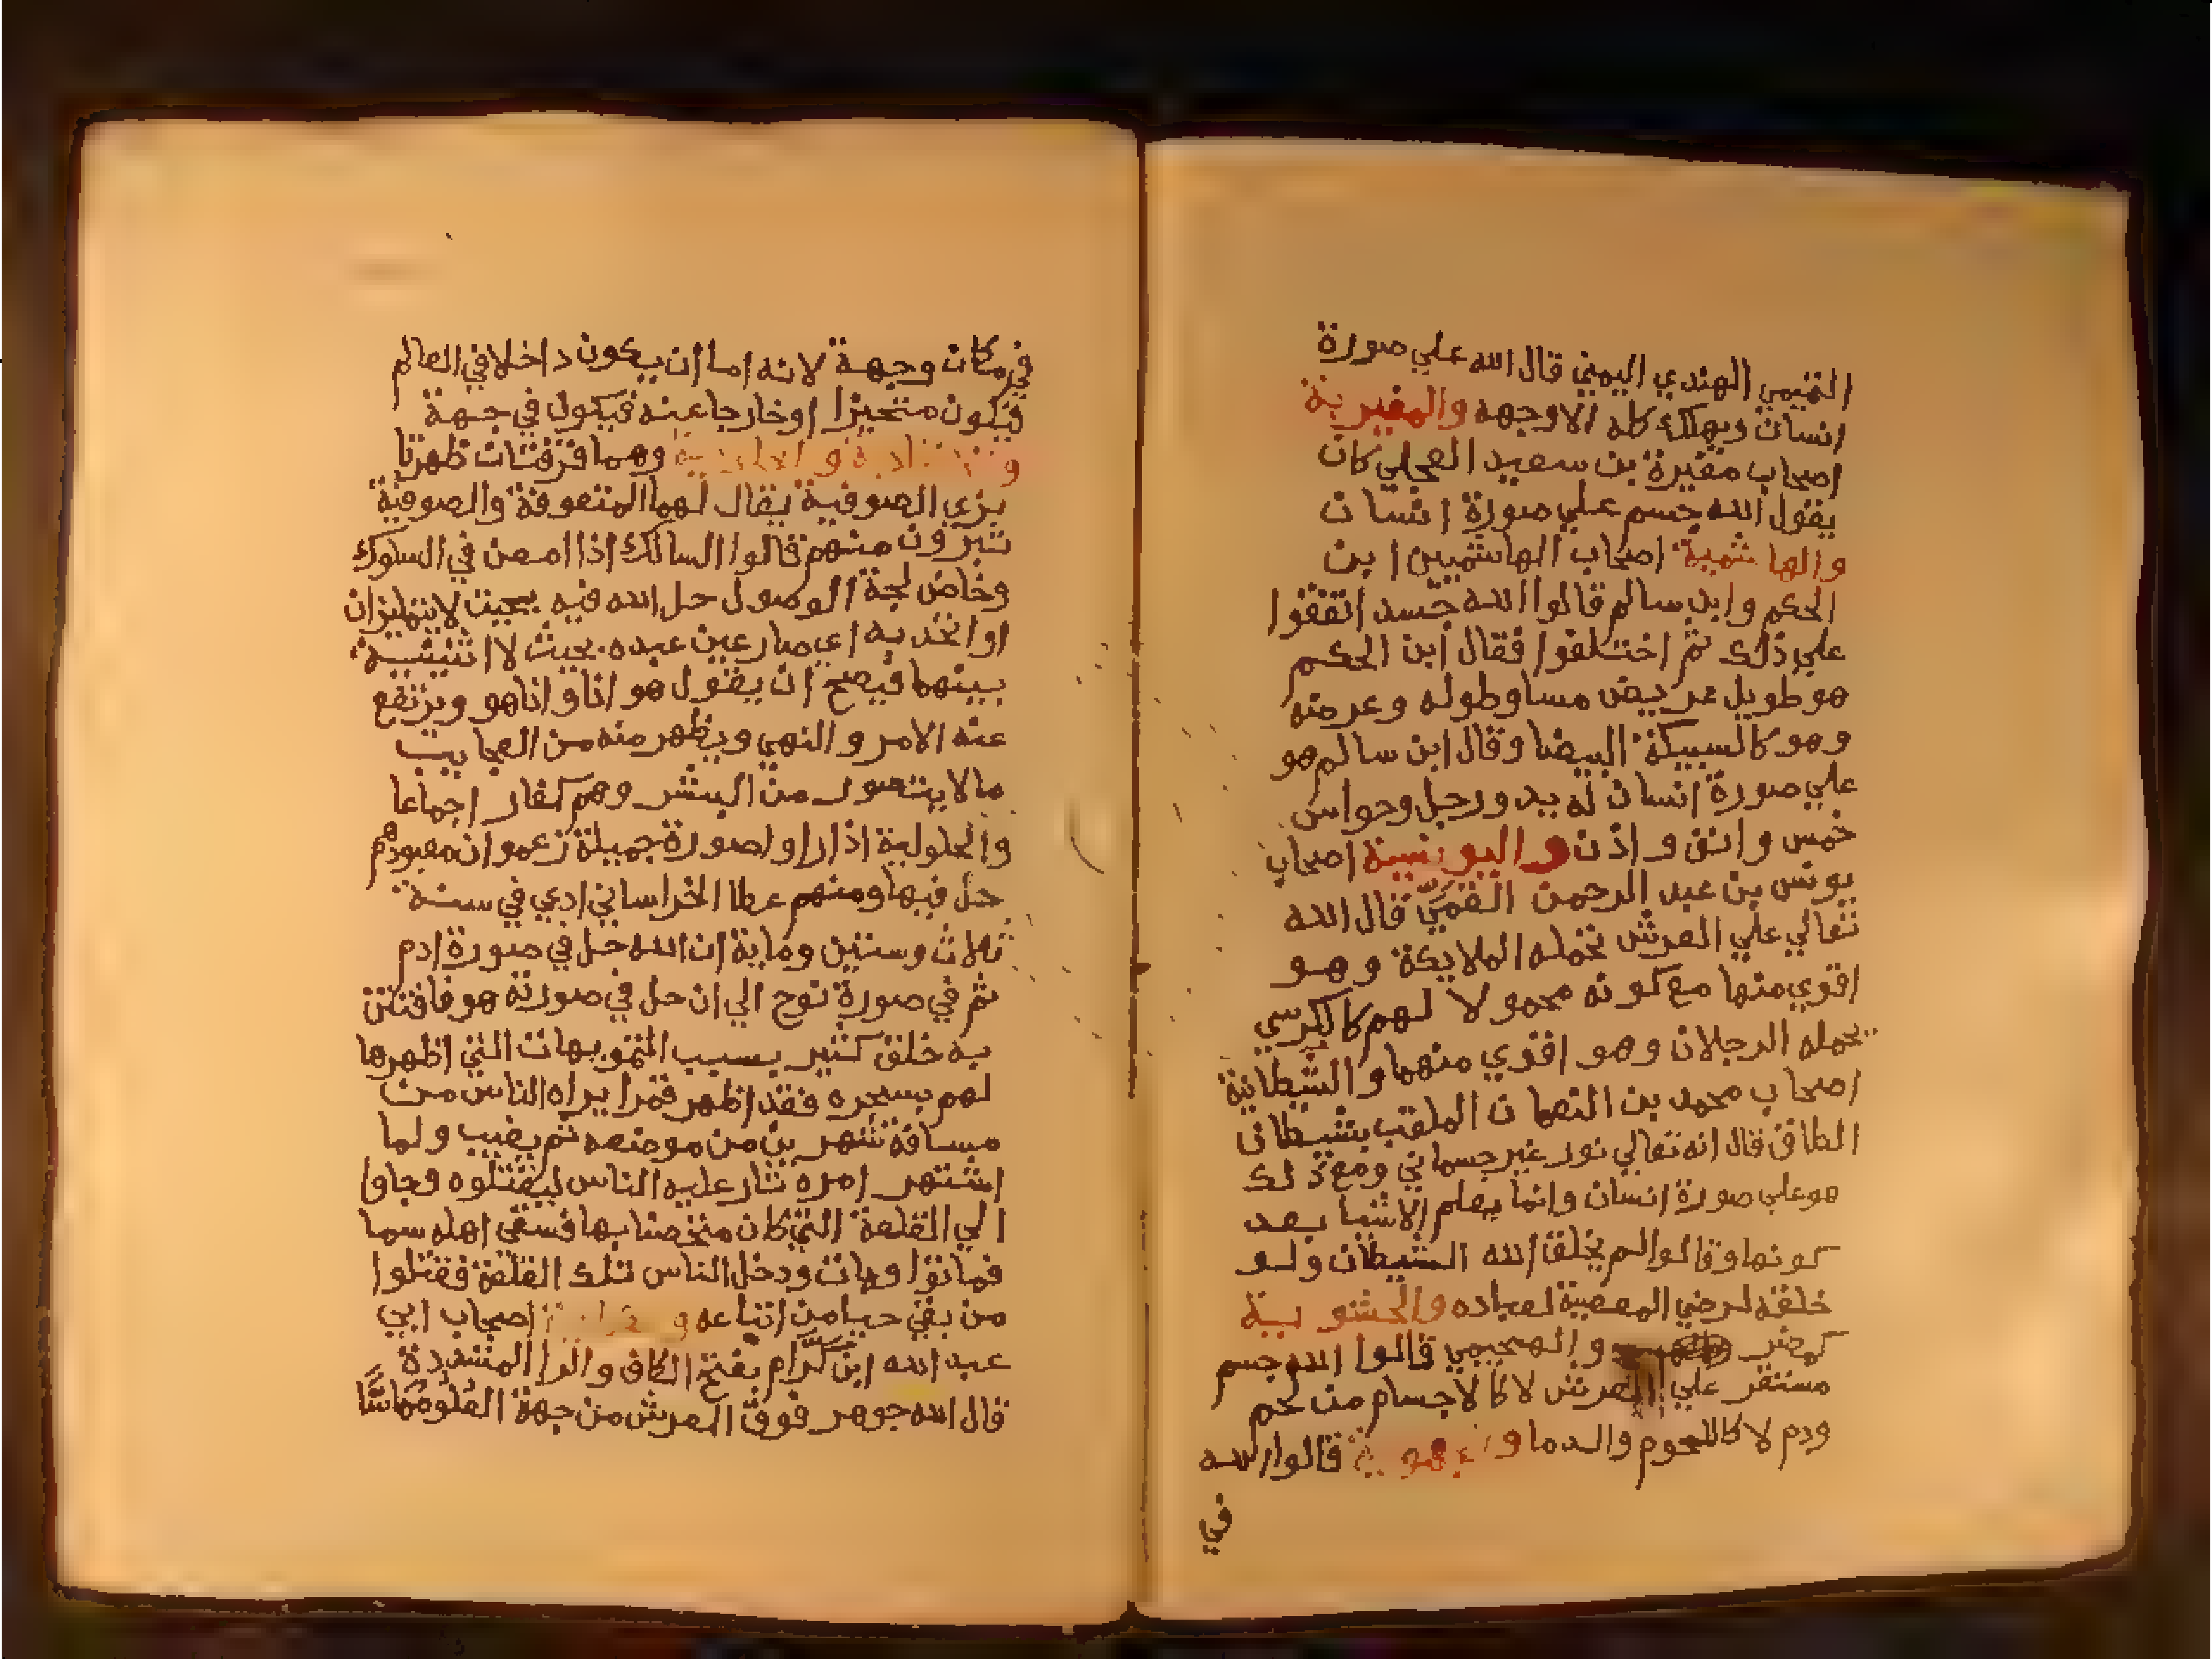 التميمي الهندي اليمني قال الله علي صورة
انسان ويهلك كله الا وجهه والمغيرية
اصحاب مغيرة بن سعيد العجلي كان
يقول الله جسم علي صورة انسان
والهاشمية اصحاب الهاشميين ابن
الحكم وابن سالم قالوا الله جسد اتفقوا
علي ذلك ثم اختلفوا فقال ابن الحكم
هو طويل عريض مساو طوله وعرضه
وهو كالسبيكة البيضا وقال ابن سالم هو
علي صورة انسان له يد ورجل وحواس
خمس وانف واذن واليونسية اصحاب
يونس بن عبد الرحمن القمي قال الله
تعالي علي العرش تحمله الملايكة وهو
اقوي منها مع كونه محمولا لهم كالكرسي
يحمله الرجلان وهو اقوي منهما والشيطانية
اصحاب محمد بن النعمان الملقب بشيطان
الطاق قال انه تعالي نور غير جسماني ومع ذلك
هو علي صورة انسان وانما يعلم الاشيا بعد
كونها وقالوا لم يخلق الله الشيطان ولو
خلقه لرضي المعصية لعباده والحشوية
كمضر والهجيمي قالوا الله جسم
مستقر علي العرش لا كالاجسام من لحم
ودم لا كاللحوم والدما قالوا الله
في
في مكان وجهة لانه اما ان يكون داخلا في العالم
فيكون متحيزا او خارجا عنه فيكون في جهة
وهما فرقتان ظهرتا
بزي الصوفية يقال لهما المتصوفة والصوفية
تتبرون منهم قالوا السالك اذا امعن في السلوك
وخاض لجة الوصول حل الله فيه بحيث لا يتمايزان
او اتحد به اي صار عين عبده بحيث لا اثنينية
بينهما فيصح ان يقول هو انا وانا هو ويرتفع
عنه الامر والنهي ويظهر منه من العجايب
ما لا يتصور من البشر وهم كفار اجماعا
والحلولية اذا راوا صورة جميلة زعموا ان معبودهم
حل فيها ومنهم عطا الخراساني ادي في سنة
ثلاث وستين وماية ان الله حل في صورة ادم
ثم في صورة نوح الي ان حل في صورته هو فافتتن
به خلق كثير بسبب التمويهات التي اظهرها
لهم بسحره فقد اظهر قمرا يراه الناس من
مسافة شهرين من موضعه ثم يغيب ولما
اشتهر امره ثار عليه الناس ليقتلوه وجاوا
الي القلعة التي كان متحصنا بها فسقي اهله سما
فماتوا ومات ودخل الناس تلك القلعة فقتلوا
من بقي حيا من اتباعه اصحاب ابي
عبد الله ابن كرام بفتح الكاف والرا المشددة
قال الله جوهر فوق العرش من جهة العلو مماسا